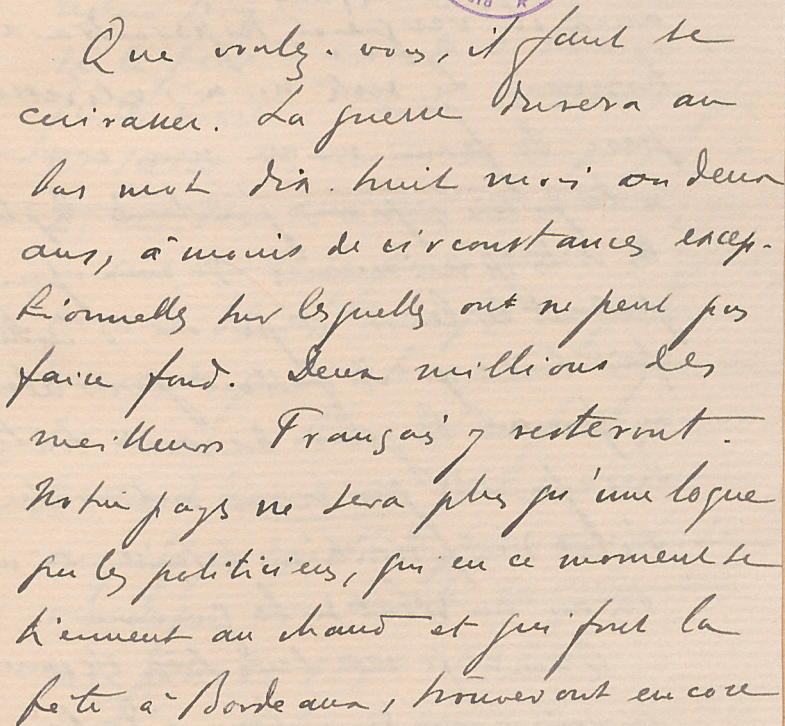 Que voulez-vous, il faut se
cuirasser. La guerre durera au
bas mot dix-huit mois ou deux
ans, à moins de circonstances excep-
tionnelles sur lesquelles on ne peut pas
faire fond. Deux millions des
meilleurs Français y resteront.
Notre pays ne sera plus qu'une loque
que les politiciens, qui en ce moment se
tiennent au chaud et qui font la
fête à Bordeaux, trouveront encore